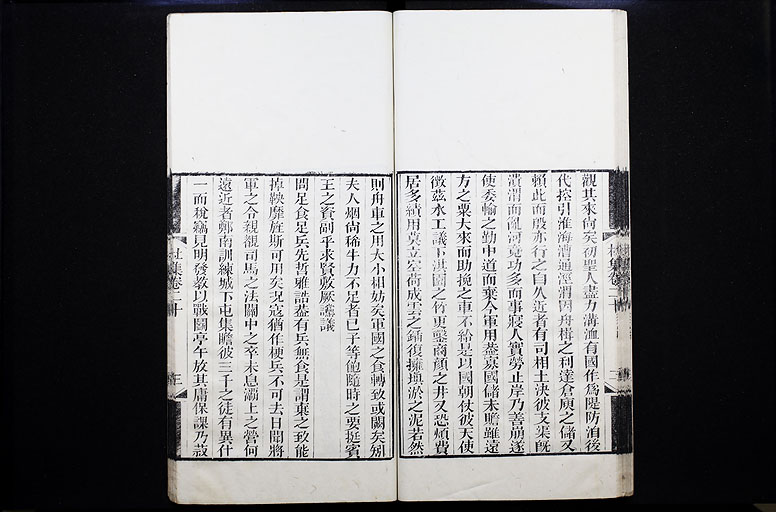 觀其來尚矣初聖人盡力溝洫有國作為隄防洎後
代控引淮海漕通涇渭因舟楫之利達倉庾之儲又
賴此而殷亦行之自久近者有司相土決彼支渠既
潰渭而亂河竟功多而事寢人實勞止岸乃善崩遂
使委輸之勤中道而棄今軍用蓋寡國儲未贍雖遠
方之粟大來而助挽之車不給是以國朝仗彼天使
徵茲水工議下淇園之竹更鑿商顏之井又恐煩費
居多績用莫立空荷成雲之鍤復擁填淤之泥若然
則舟車之用大小相妨矣軍國之食轉致或闕矣矧
夫人烟尚稀牛力不足者已子等飽隨時之要挺賓
王之資副乎求賢敷厥讜議
問足食足兵先哲雅誥蓋有兵無食是謂棄之致能
掉鞅靡旌斯可用矣況寇猶作梗兵不可去日聞將
軍之令親覩司馬之法關中之卒未息灞上之營何
遠近者鄭南訓練城下屯集瞻彼三千之徒有異什
一而稅竊見明發教以戰鬬亭午放其庸保課乃菽
杜集卷二十
三